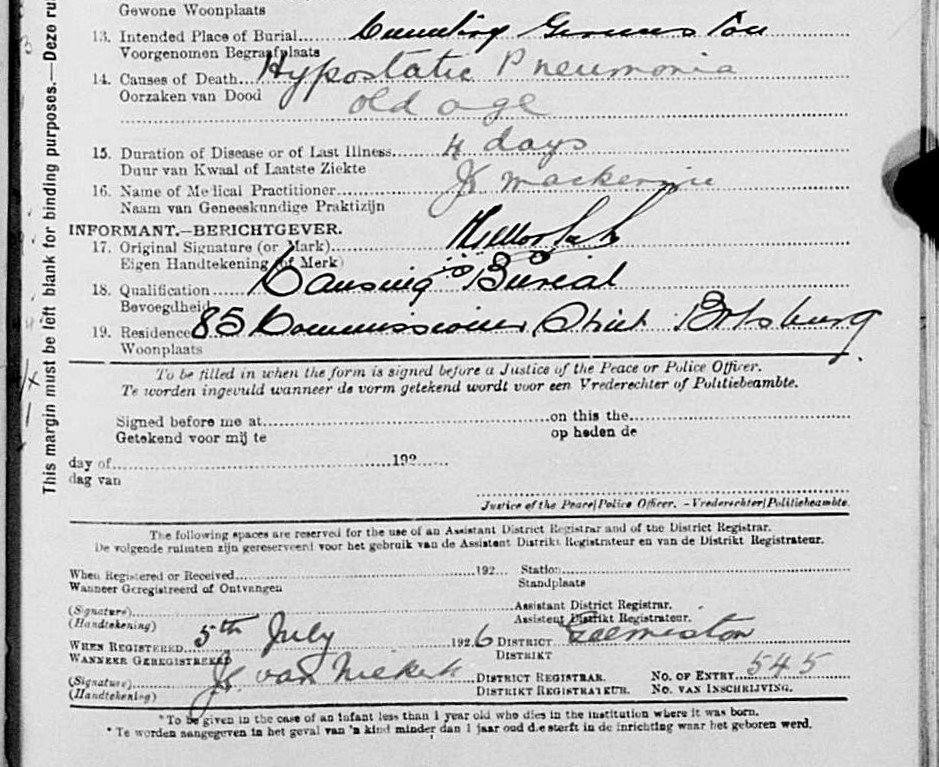 Gewone Woonplaats
13. Intended Place of Burial
Voorgenomen Begraafplaats
14. Causes of Death Hypostatic Pneumonia
Oorzaken van Dood old age
15. Duration of Disease or of Last Illness 4 days
Duur van Kwaal of Laatste Ziekte
16. Name of Medical Practitioner J Mackenzie
Naam van Geneeskundige Praktizijn
INFORMANT.—BERICHTGEVER.
17. Original Signature (or Mark)
Eigen Handtekening (of Merk)
18. Qualification Causing Burial
Bevoegdheid
19. Residence 85 Commissioner Street Boksburg
Woonplaats
To be filled in when the form is signed before a Justice of the Peace or Police Officer.
Te worden ingevuld wanneer de vorm getekend wordt voor een Vrederechter of Politiebeambte.
Signed before me at on this the
Getekend voor mij te op heden de
day of 192
dag van
Justice of the Peace/Police Officer. - Vrederechter/Politiebeambte.
The following spaces are reserved for the use of an Assistant District Registrar and of the District Registrar.
De volgende ruimten zijn gereserveerd voor het gebruik van de Assistent Distrikt Registrateur en van de Distrikt Registrateur.
When Registered or Received 192 Station
Wanneer Geregistreerd of Ontvangen Standplaats
(Signature) Assistant District Registrar.
(Handtekening) Assistent Distrikt Registrateur.
WHEN REGISTERED 5th July 1926 DISTRICT Germiston
WANNEER GEREGISTREERD DISTRIKT
(Signature) van Niekerk DISTRICT REGISTRAR. NO. OF ENTRY 545
(Handtekening) DISTRIKT REGISTRATEUR. NO. VAN INSCHRIJVING.
* To be given in the case of an infant less than 1 year old who dies in the institution where it was born.
* Te worden aangegeven in het geval van 'n kind minder dan 1 jaar oud die sterft in de inrichting waar het geboren werd.
This margin must be left blank for binding purposes.—Deze ru